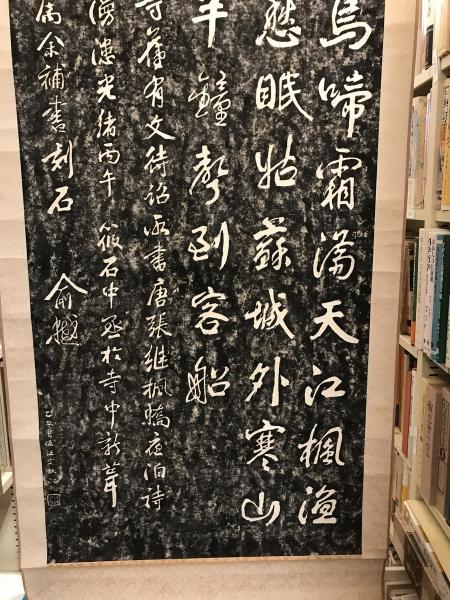 烏啼霜滿天江楓漁
愁眠姑蘇城外寒山
半鐘聲到客船
寺舊有文待詔所書唐張繼楓橋夜泊詩
漫漶光緒丙午筱石中丞於寺中新葺
屬余補書刻石 俞樾